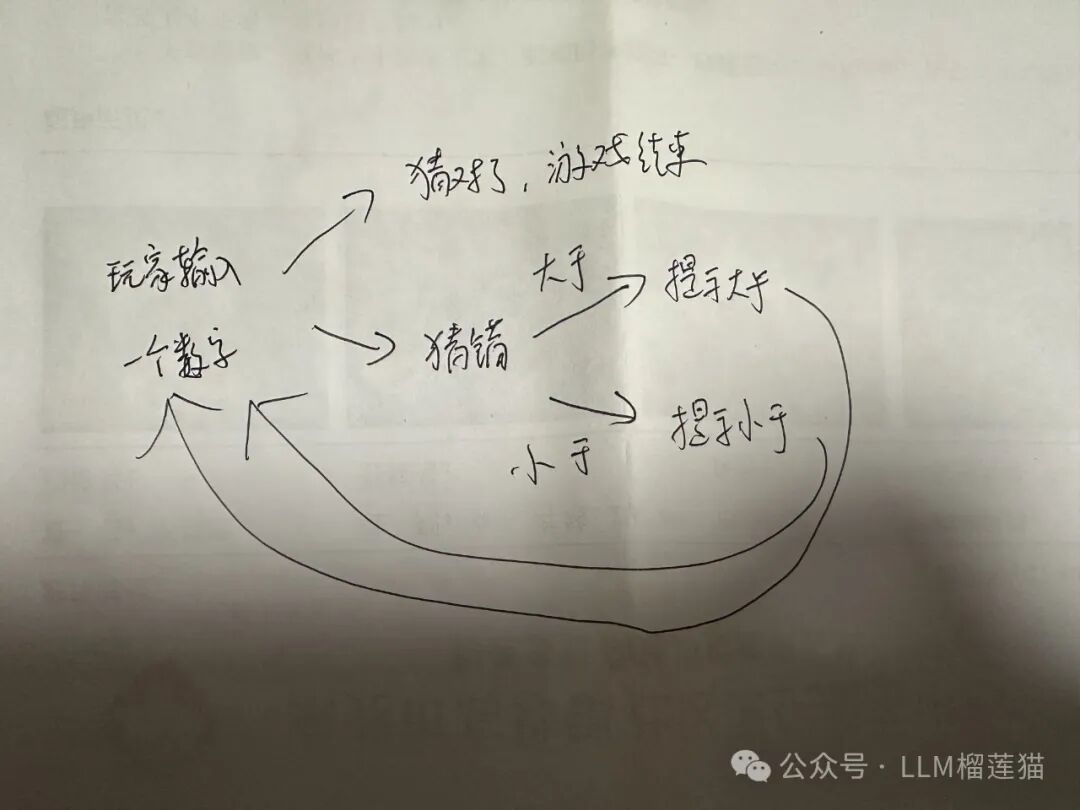 猜对了，游戏结束
玩家输入
一个数字
大于
提示大于
猜错
小于
提示小于
公众号·LLM榴莲猫